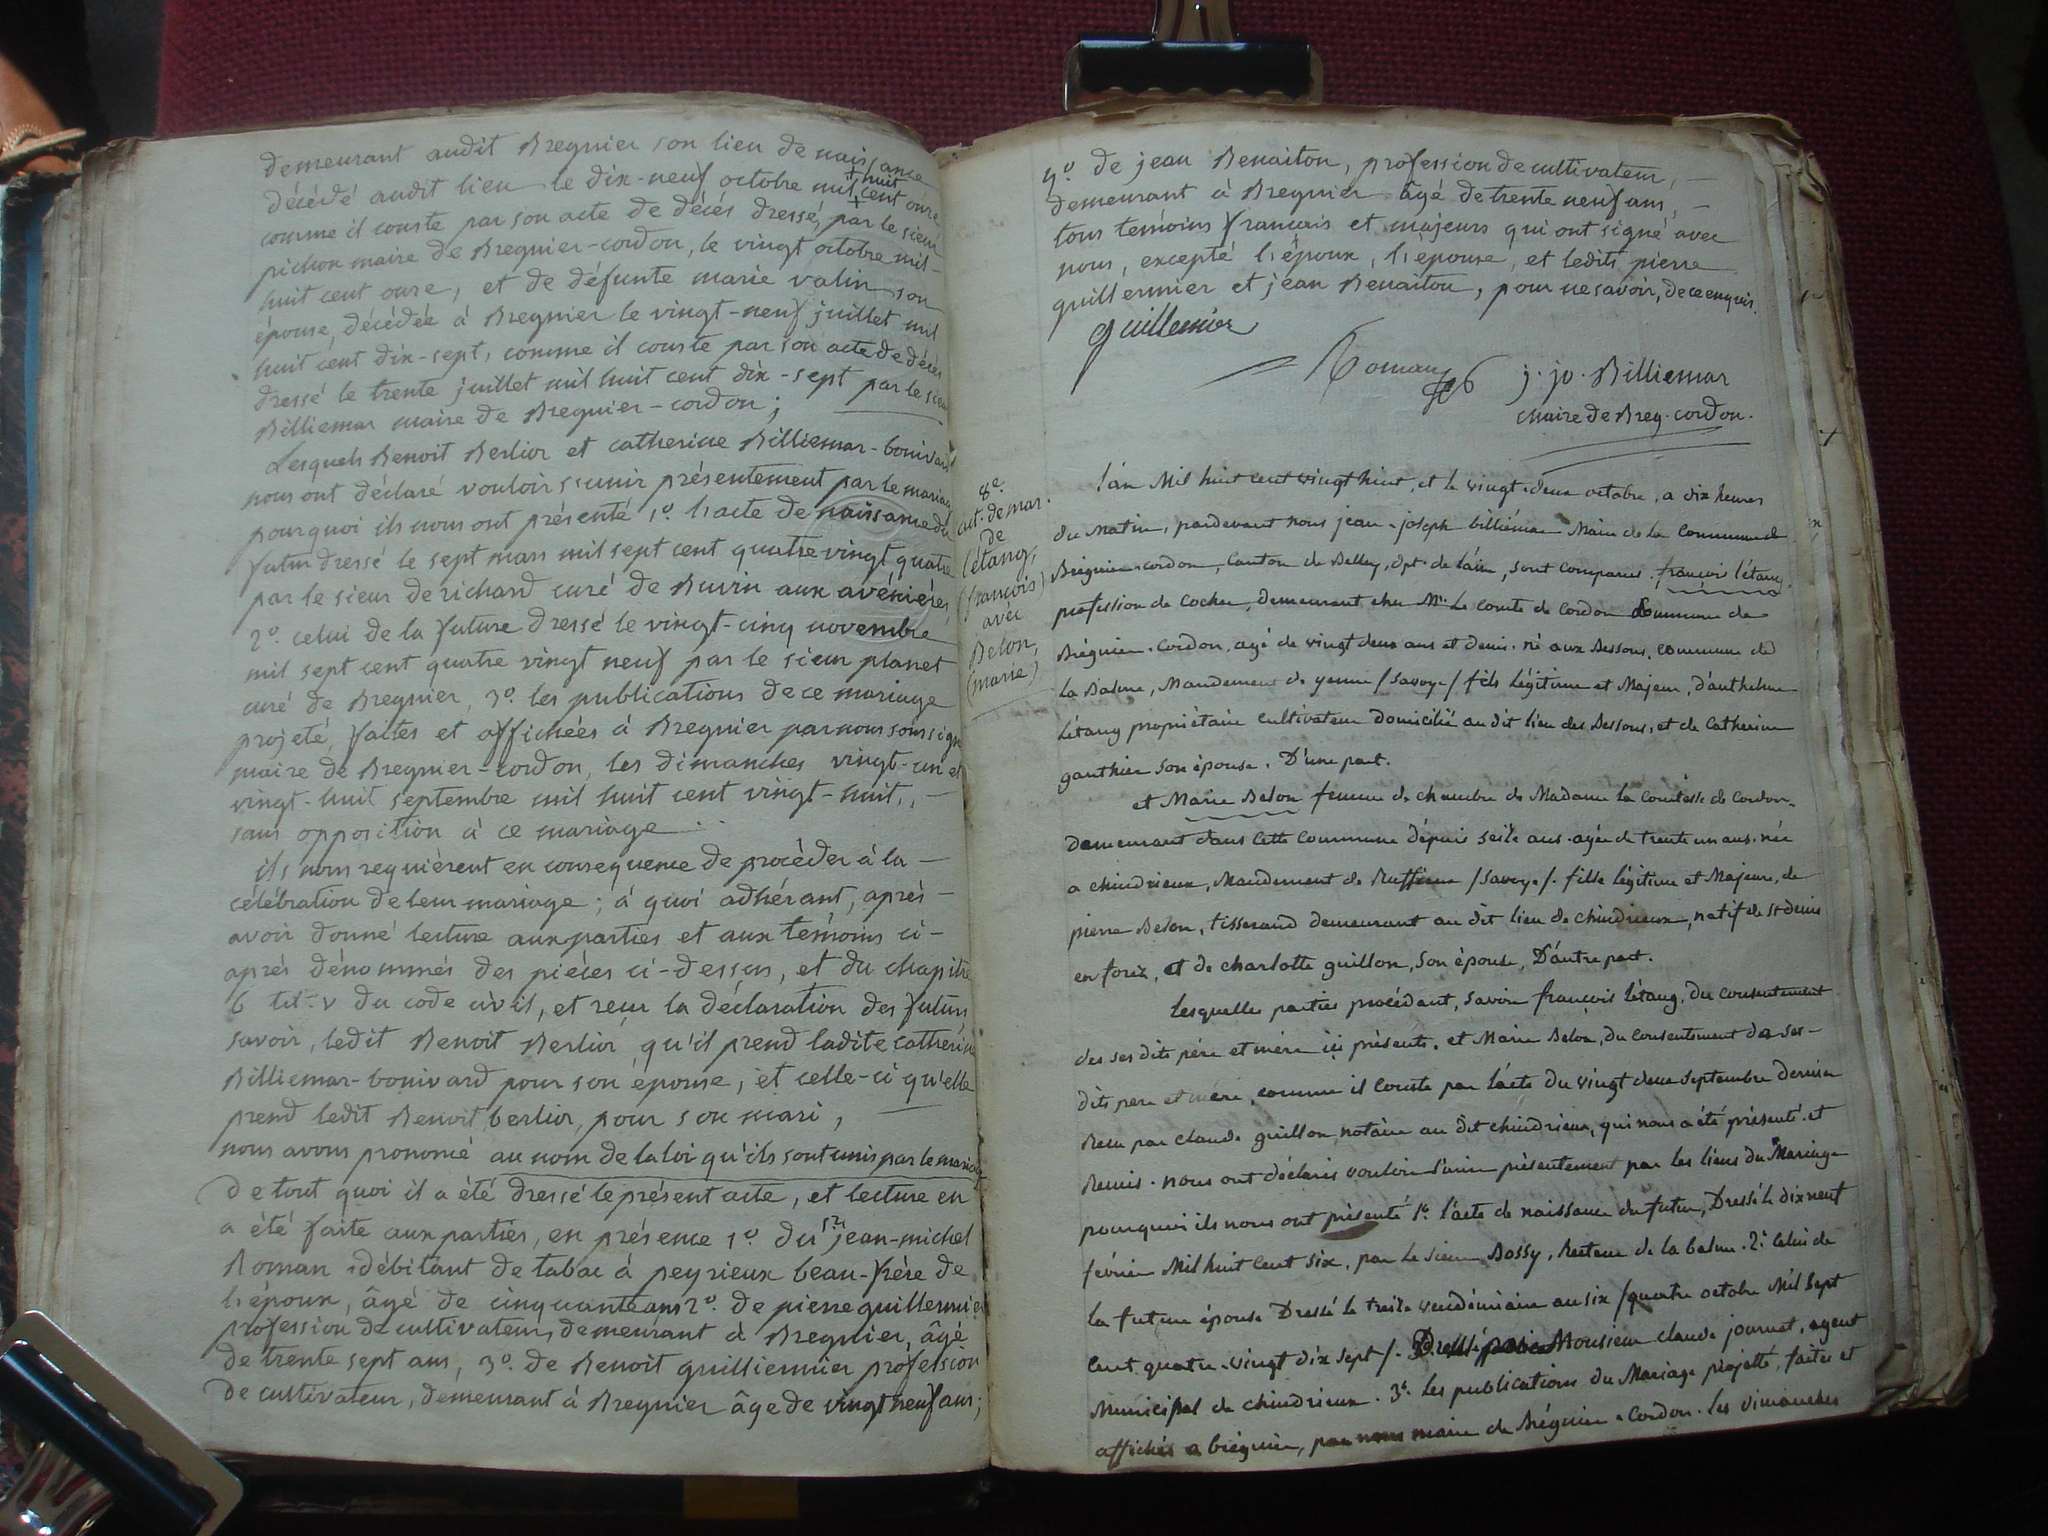 demeurant audit Bregnier son lieu de naissance
décédé audit lieu le dix-neuf octobre mil + huit cent onze
comme il conste par son acte de décés dressé, par le sieur
pichon maire de Bregnier-cordon, le vingt octobre mil-
huit cent onze, et de défunte marie valin son
épouse, décédée à Bregnier le vingt-neuf juillet mil
huit cent dix-sept, comme il conste par son acte de décés
dressé le trente juillet mil huit cent dix-sept par le sieur
Billiemar maire de Bregnier-cordon;
Lesquels Benoit Berlior et catherine Billiemar-bonivard
nous ont déclaré vouloir s'unir présentement par le mariage
pourquoi ils nous ont présenté 1º. l'acte de naissance du
futur dressé le sept mars mil sept cent quatre vingt quatre
par le sieur de richard curé de Buvin aux avénières,
2º. celui de la future dressé le vingt-cinq novembre
mil sept cent quatre vingt neuf par le sieur planet
curé de Bregnier, 3º. les publications de ce mariage
projeté, faites et affichées à Bregnier par nous soussigné
maire de Bregnier-cordon, les dimanches vingt-un et
vingt-huit septembre mil huit cent vingt-huit,
sans opposition à ce mariage
ils nous requiérent en consequence de procéder à la
célébration de leur mariage; à quoi adhérant, aprés
avoir donné lecture aux parties et aux temoins ci-
aprés dénommés des piéces ci-dessus, et du chapitre
6 tit-v du code civil, et reçu la déclaration des futurs
savoir, ledit Benoit Berlior, qu'il prend ladite catherine
Billiemar-bonivard pour son épouse, et celle-ci qu'elle
prend ledit Benoit berlior, pour son mari,
nous avons prononcé au nom de la loi qu'ils sont unis par le mariage
De tout quoi il a été dressé le présent acte, et lecture en
a été faite aux parties, en présence 1º. du sr. jean-michel
Roman débitant de tabac à peyrieux beau-frère de
l'époux, âgé de cinquante ans 2º. de pierre guillermier
profession de cultivateur, demeurant à Bregnier, âgé
de trente sept ans, 3º. de Benoit guilliermier profession
de cultivateur, demeurant à Bregnier âge de vingt neuf ans;
4º. de jean Benaiton, profession de cultivateur,
demeurant à Bregnier âgé de trente neuf ans,
tous temoins français et majeurs qui ont signé avec
nous, excepté l'époux, l'épouse, et ledits pierre
guillermier et jean Benaiton, pour ne savoir, de ce enquis.
guillermier
Roman
j. jo. Billiemar
maire de Breg-cordon.
8e.
act. de mar.
de
létang,
(francois)
avéc
Belon,
(marie)
l'an Mil huit cent vingt huit, et le vingt-deux octobre, a dix heures
du matin, pardevant nous jean-joseph billiémar Maire de la Commune de
Brégnier-cordon, Canton de Belley, dpt. de l'ain, sont comparus. françois l'étang.
profession de cocher, demeurant chez Mr. Le comte de Cordon Commune de
Brégnier-Cordon, agé de vingt deux ans et demi. né aux Dessous, commune de
la Balme, Mandement de yenne / Savoye / fils légitime et Majeur, d'anthelme
Létang propriétaire cultivateur domicilié au dit lieu des Dessous, et de Catherine
gauthier son épouse. D'une part.
et Marie Belon femme de chambre de Madame la comtesse de Cordon.
demeurant dans cette commune dépuis seize ans. agée de trente un ans. née
a chindrieux, Mandement de Ruffieux / Savoye /. fille légitime et Majeure, de
pierre Belon, tisserand demeurant au dit lieu de chindrieux, natif de St denis
en forez, et de charlotte guillon, son épouse, D'autre part.
Lesquelles parties procédant, savoir françois Létang, du consentement
des ses dits père et mère ici présents. et Marie Belon, du consentement de ses-
dits père et mère, comme il conste par l'acte du vingt deux septembre dernier
Reçu par claude guillon, notaire au dit chindrieux, qui nous a été présenté. et
Remis. nous ont déclarés vouloir s'unir présentement par les liens du Mariage
pourquoi ils nous ont présenté 1º. l'acte de naissance du futur, Dressé le dix neuf
février Mil huit Cent Six, par le sieur Bossy, Recteur de la balme. 2º. Celui de
la future épouse Dressé le treize vendémiaire an six / quatre octobre Mil Sept
Cent quatre-vingt dix sept /. Monsieur claude journet, agent
Municipal de chindrieux. 3º. les publications du Mariage projetté, faites et
affichées a brégnier, par nous maire de Brégnier-Cordon. les dimanches